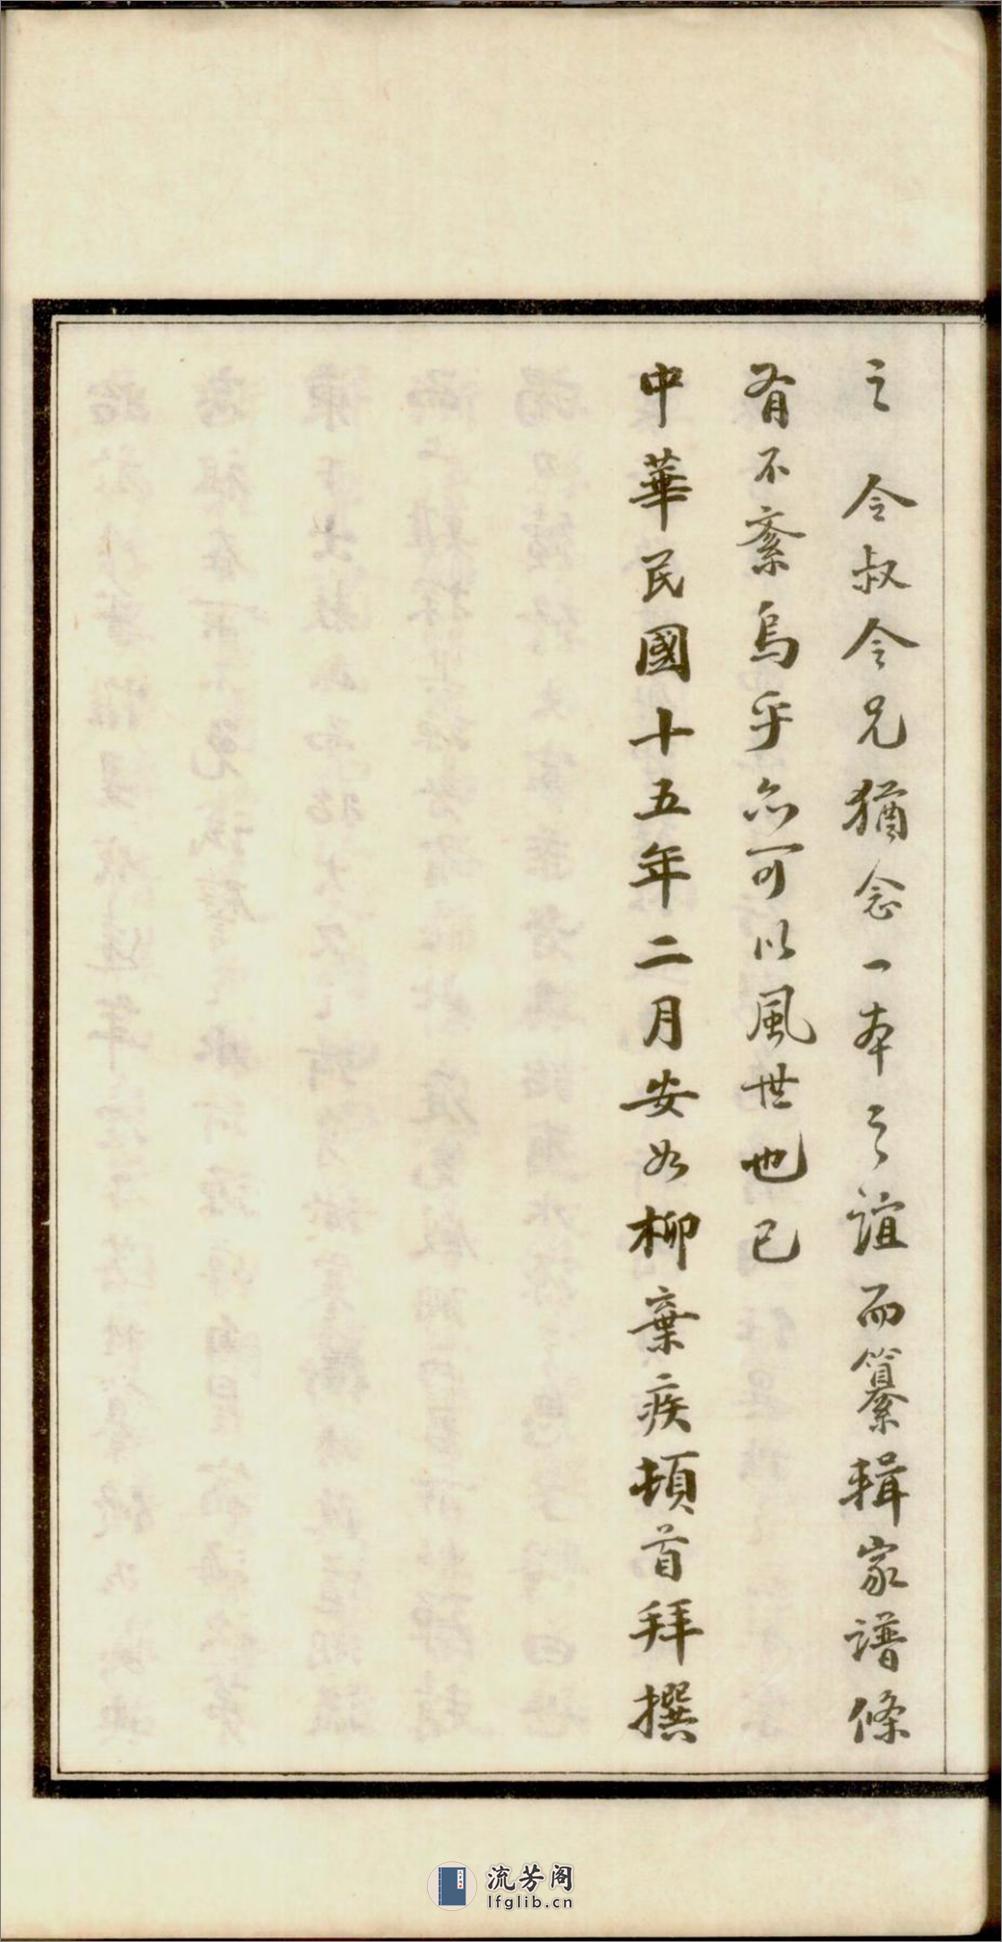 之 令叔令兄猶念一本之誼而纂輯家譜條
有不紊烏乎亦可以風世也已
中華民國十五年二月安如柳棄疾頓首拜撰
流芳阁
lfglib.cn